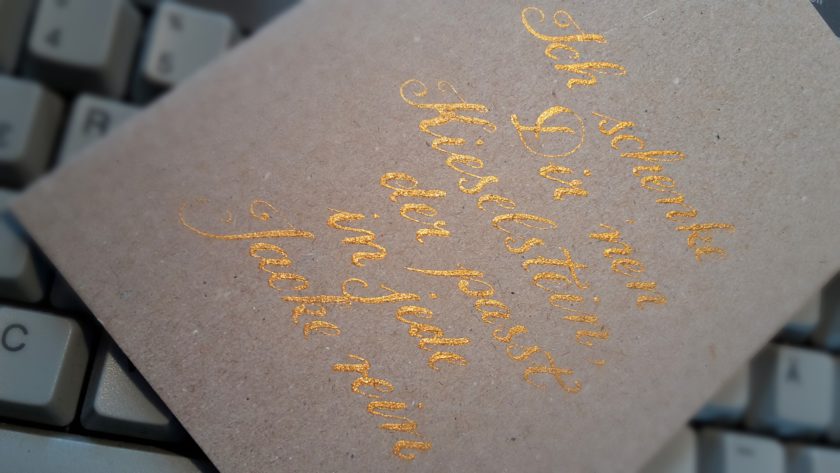 Ich schenke
Dir nen
Kieselstein,
der passt
in jede
Jacke rein
4
5
R
C
Ä